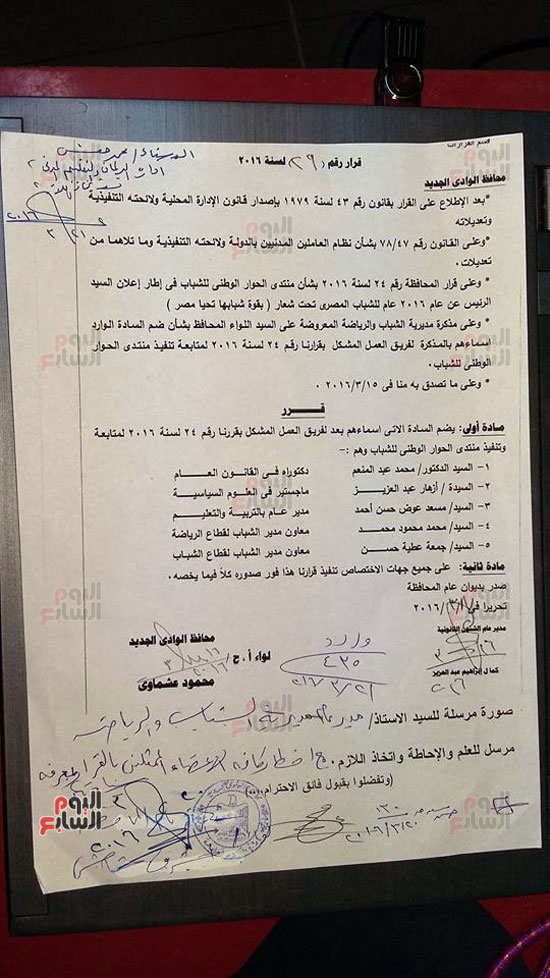 قسم القرارات
قرار رقم ( ٢٩ ) لسنة ٢٠١٦
محافظ الوادى الجديد
* بعد الإطلاع على القرار بقانون رقم ٤٣ لسنة ١٩٧٩ بإصدار قانون الإدارة المحلية ولائحته التنفيذية
وتعديلاته
* وعلى القانون رقم ٧٨/٤٧ بشأن نظام العاملين المدنيين بالدولة ولائحته التنفيذية وما تلاهما من
تعديلات .
* وعلى قرار المحافظة رقم ٢٤ لسنة ٢٠١٦ بشأن منتدى الحوار الوطنى للشباب فى إطار إعلان السيد
الرئيس عن عام ٢٠١٦ عام للشباب المصرى تحت شعار ( بقوة شبابها تحيا مصر )
* وعلى مذكرة مديرية الشباب والرياضة المعروضة على السيد اللواء المحافظ بشأن ضم السادة الوارد
اسماءهم بالمذكرة لفريق العمل المشكل بقرارنا رقم ٢٤ لسنة ٢٠١٦ لمتابعة تنفيذ منتدى الحوار
الوطنى للشباب .
* وعلى ما تصدق به منا فى ٢٠١٦/٣/١٥ .
قــرر
مادة أولى: يضم السادة الاتى اسماءهم بعد لفريق العمل المشكل بقررنا رقم ٢٤ لسنة ٢٠١٦ لمتابعة
وتنفيذ منتدى الحوار الوطنى للشباب وهم :-
١- السيد الدكتور/ محمد عبد المنعم دكتوراه فى القانون العـام
٢- السيدة / أزهار عبد العزيز ماجستير فى العلوم السياسية
٣- السيد/ مسعد عوض حسن أحمد مدير عام بالتربية والتعليم
٤- السيد/ محمد محمود محمـد معاون مدير الشباب لقطاع الرياضة
٥- السيد/ جمعة عطية حسـن معاون مدير الشباب لقطاع الشباب
مادة ثانية: على جميع جهات الاختصاص تنفيذ قرارنا هذا فور صدوره كلاً فيما يخصه .
صدر بديوان عام المحافظة
تحريرا فى ٢٠١٦/٣/
مدير عام الشئون القانونية
كمال إبراهيم عبد العزيز
وارد
٤٣٥
٢٠١٦/٣/٢١
محافظ الوادى الجديد
لواء أ . ح /
محمود عشماوى
صورة مرسلة للسيد الاستاذ/ مدير عام مديرية الشباب والرياضة
مرسل للعلم والإحاطة واتخاذ اللازم . مع اخطار كافة الأعضاء الممثلين بالقرار بمعرفة
(وتفضلوا بقبول فائق الاحترام ،،،)
٢٠١٦/٣/٢٠
اليوم السابع